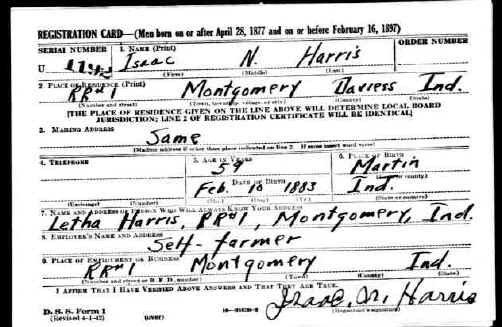 REGISTRATION CARD—(Men born on or after April 28, 1877 and on or before February 16, 1897)
SERIAL NUMBER 1. NAME (Print) ORDER NUMBER
U Isaac N. Harris
(First) (Middle) (Last)
2. PLACE OF RESIDENCE (Print)
RR#1 Montgomery Daviess Ind.
(Number and street) (Town, township, village, or city) (County) (State)
[THE PLACE OF RESIDENCE GIVEN ON THE LINE ABOVE WILL DETERMINE LOCAL BOARD
JURISDICTION; LINE 2 OF REGISTRATION CERTIFICATE WILL BE IDENTICAL]
3. MAILING ADDRESS
Same
[Mailing address if other than place indicated on line 2. If same insert word same]
4. TELEPHONE 5. AGE IN YEARS 6. PLACE OF BIRTH
59 Martin
DATE OF BIRTH (Town or county)
Feb. 10 1883 Ind.
(Exchange) (Number) (Mo.) (Day) (Yr.) (State or country)
7. NAME AND ADDRESS OF PERSON WHO WILL ALWAYS KNOW YOUR ADDRESS
Letha Harris, RR#1, Montgomery, Ind.
8. EMPLOYER'S NAME AND ADDRESS
Self-farmer
9. PLACE OF EMPLOYMENT OR BUSINESS
RR#1 Montgomery Ind.
(Number and street or R. F. D. number) (Town) (County) (State)
I AFFIRM THAT I HAVE VERIFIED ABOVE ANSWERS AND THAT THEY ARE TRUE.
Isaac, N. Harris
D. S. S. Form 1
(Revised 4-1-42) (over) (Registrant's signature)